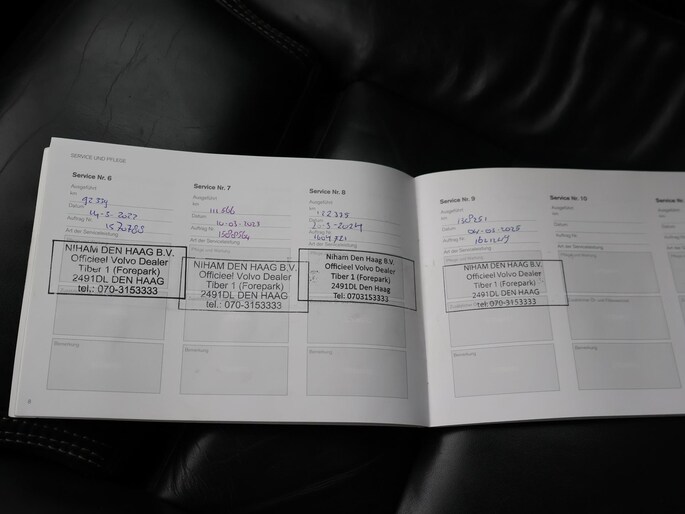 SERVICE UND PFLEGE
Service Nr. 6
Ausgeführt
km 92334
Datum 14-3-2022
Auftrag Nr.
Art der Serviceleistung
NIHAM DEN HAAG B.V.
Officieel Volvo Dealer
Tiber 1 (Forepark)
2491DL DEN HAAG
tel.: 070-3153333
Bemerkung
6
Service Nr. 7
Ausgeführt
km 111566
Datum 14-03-2023
Auftrag Nr.
Art der Serviceleistung
NIHAM DEN HAAG B.V.
Officieel Volvo Dealer
Tiber 1 (Forepark)
2491DL DEN HAAG
tel.: 070-3153333
Bemerkung
Service Nr. 8
Ausgeführt
km
Datum
Auftrag Nr.
Art der Serviceleistung
Niham Den Haag B.V.
Officieel Volvo Dealer
Tiber 1 (Forepark)
2491DL Den Haag
Tel: 0703153333
Bemerkung
Service Nr. 9
Ausgeführt
km
Datum
Auftrag Nr.
Art der Serviceleistung
NIHAM DEN HAAG B.V.
Officieel Volvo Dealer
Tiber 1 (Forepark)
2491DL DEN HAAG
tel.: 070-3153333
Bemerkung
Service Nr. 10
Ausgeführt
km
Datum
Auftrag Nr.
Art der Serviceleistung
Bemerkung
Service
Ausgeführt
km
Datum